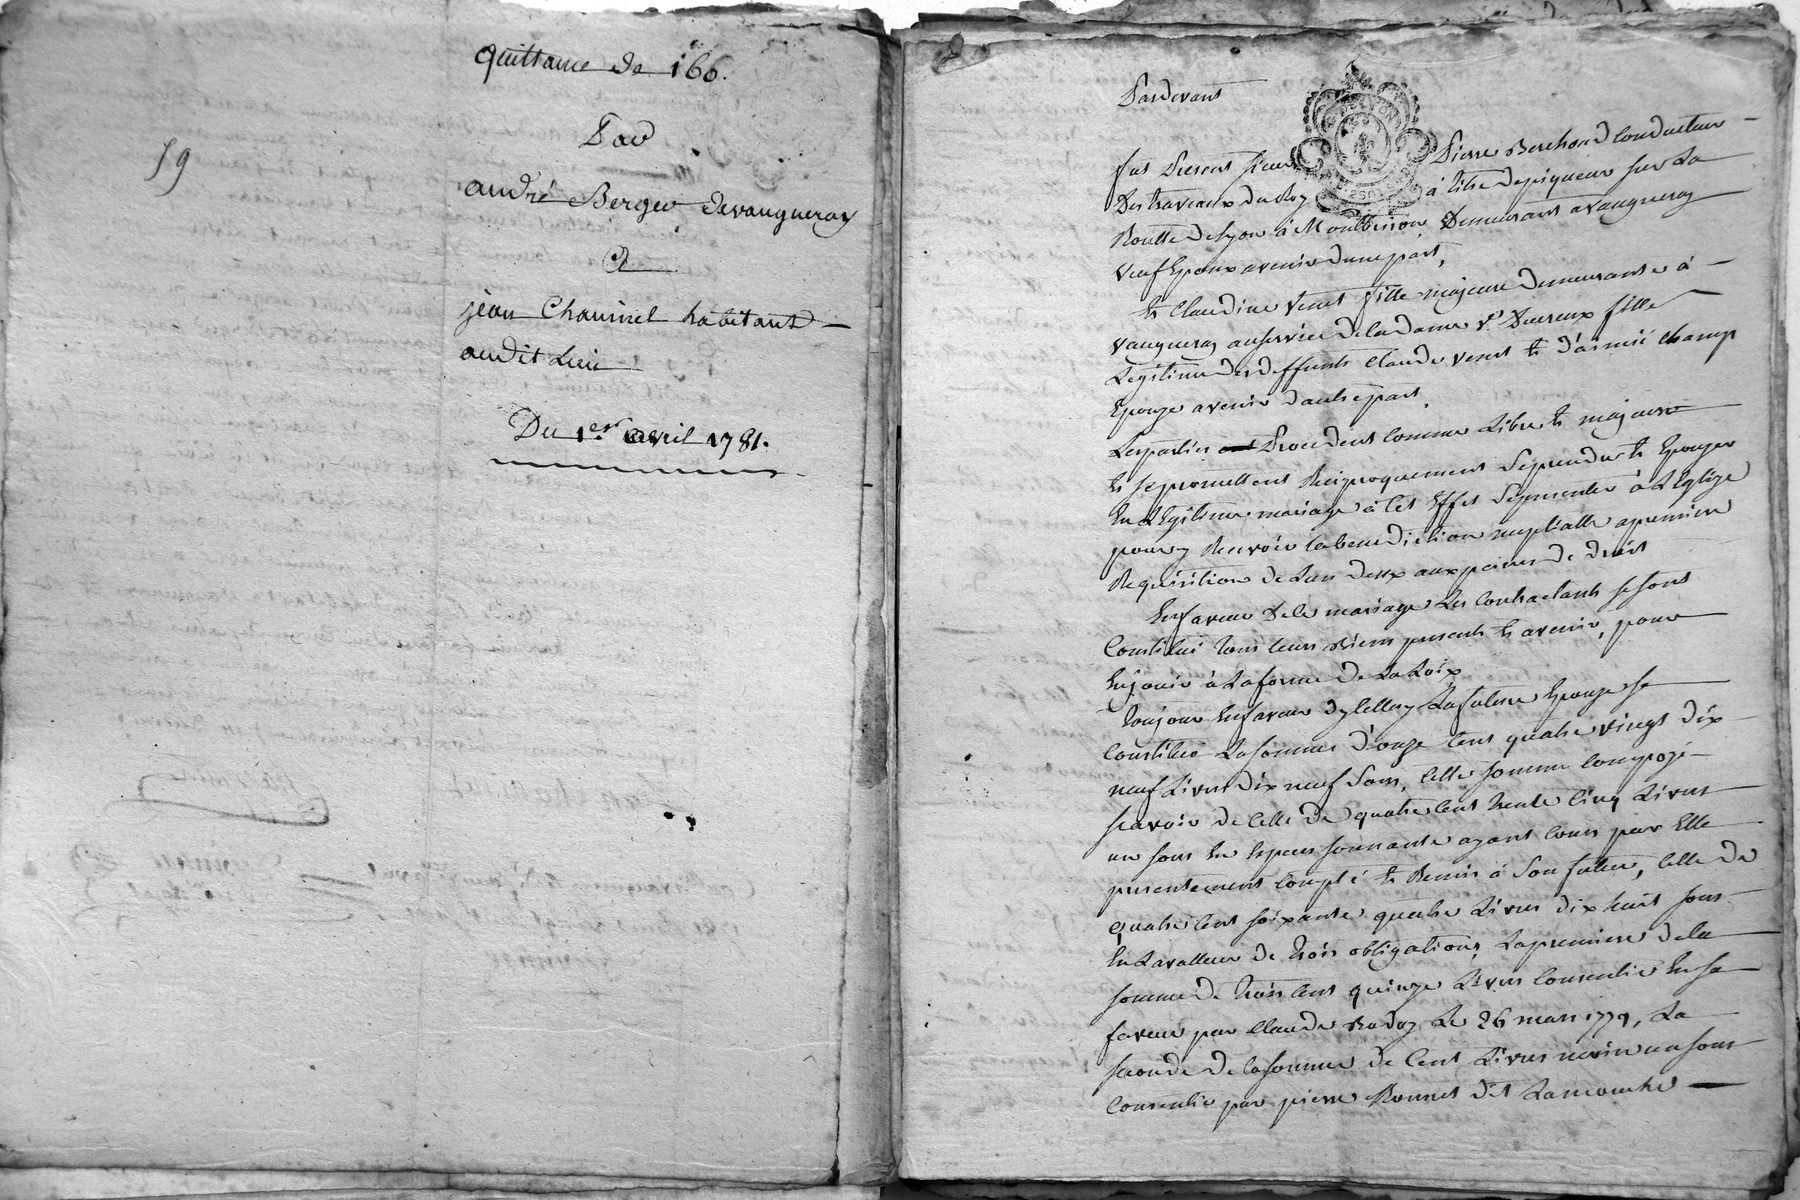 quittance de 166.
59
Par
andré Berger devaugneray
A
jean Chauinel habitant
audit Lieu
Du 1er avril 1781.
Pardevant
fut Present sieur Pierre Berchoud Conducteur
Des travaux du Roy à titre de piqueur sur La
Routte de Lyon à Montbrison Demeurant a vaugneray
veuf Epoux avenir dune part,
Et Claudine Venet fille majeure demeurante à
vaugneray au service de la dame ve Decreux fille
Legitime des deffunts Claude Venet Et d'
Epouze avenir dautre part.
Les parties Procedent comme Libre Et majeure
Et se promettent Reciproquement se prendre Et Epouzer
En Legitime mariage à Cet Effet se presenter à L'Eglize
pour y Recevoir la benediction nuptialle a premiere
Requisition de Lun deux aux peines de droit
En faveur De Ce mariage Les Contractants se sont
Constitué tous leurs Biens presents Et avenir, pour
En jouir à La forme de La Loix
Toujour En faveur dyCelluy La future Epouze se
Constitue La somme d'onze Cent quatre vingt dix
neuf Livres dix neuf Sous, Cette somme Compozé
scavoir de Celle de quatre Cent trente Cinq Livres
un sous En Especes sonnante ayant Cours par Elle
presentement Compté Et Remis à Son futur, Celle de
quatre Cent soixante quatre Livres dix huit sous
En La valleur de trois obligations, La premiere de la
somme de trois Cent quinze Livres Consentie En sa
faveur par Claude Le 26 mars 1779, La
seconde De la somme de Cent Livres moins un sous
Consentie par pierre Bonnet dit Lamouche